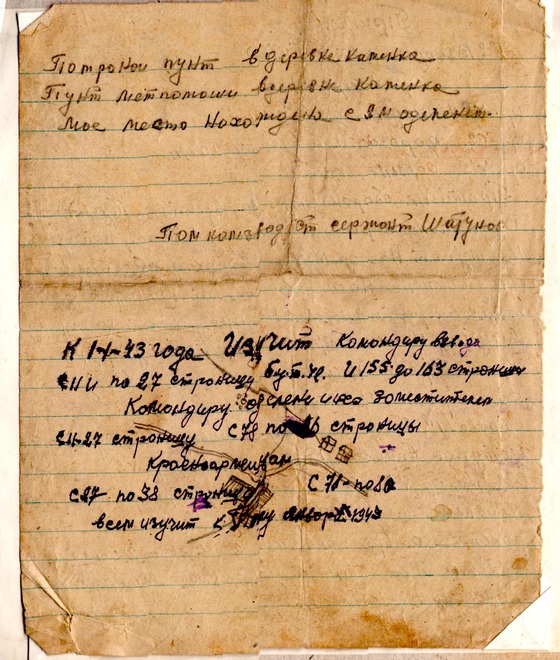 Потроной пункт в деревне каменка
Пункт метпомоши вдеревне каменка
мое место нахождения с 2м
Пом комзвод ст сержонт Шатунов
К 1-1-43 года Изучит Командиру взвода
с 11 и по 27 страницу И 155 до 163 страницы
Командиру заместителем
с 11-27 страницу с 78 по страницы
Красноармейцам
с 27 по 38 страницу с 78-по 80
всем изучит к 1943